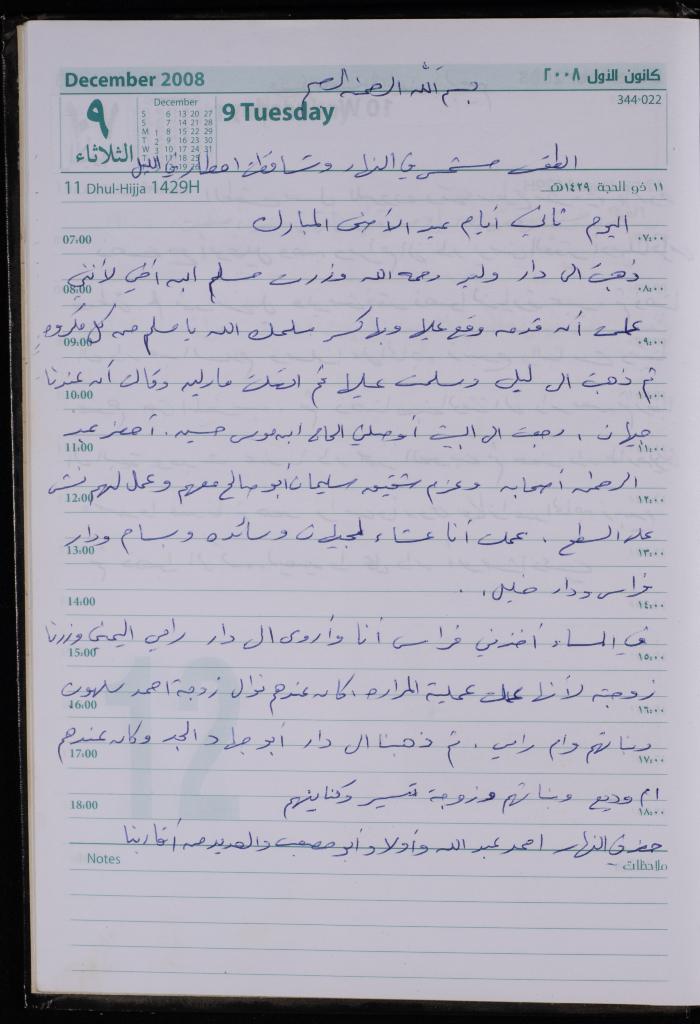 December 2008
كانون الأول ٢٠٠٨
بسم الله الرحمن الرحيم
344-022
9 Tuesday
٩
الثلاثاء
December
S 6 13 20 27
S 7 14 21 28
M 1 8 15 22 29
T 2 9 16 23 30
W 3 10 17 24 31
الطقس مشمس في النهار وتساقطت امطار في الليل
11 Dhul-Hijja 1429H
١١ ذو الحجة ١٤٢٩هـ
اليوم ثاني أيام عيد الأضحى المبارك
07:00 ٠٧:٠٠
ذهبت الى دار وليد رحمه الله وزرت مسلم ابن أخي لأنني
08:00 ٠٨:٠٠
علمت أن قدمه وقع عليها وانكسر سلمك الله يا مسلم من كل مكروه
09:00 ٠٩:٠٠
ثم ذهبت الى ليلى وسلمت عليها ثم اتصلت مارلين وقالت أن عندنا
10:00 ١٠:٠٠
جيلان . رجعت الى البيت أوصلني الحاج ابن موسى حسين . أحضر عبد
11:00 ١١:٠٠
الرحمن أصحابه وعزم شقيقه سليمان أبو صالح معهم وعمل لهم
12:00 ١٢:٠٠
على السطح . عملت أنا عشاء لجيلان وسائده وبسام ودار
13:00 ١٣:٠٠
فراس ودار خليل .
14:00 ١٤:٠٠
في المساء أخذني فراس أنا وأروى الى دار رامي اليمني وزرنا
15:00 ١٥:٠٠
زوجته لأنها عملت عملية المراره . كان عندهم نوال زوجة احمد سلهوب
16:00 ١٦:٠٠
وبناتهم وام رامي . ثم ذهبنا الى دار أبو جهاد الجد وكان عندهم
17:00 ١٧:٠٠
ام وديع وبناتهم وزوجة تيسير وكناينهم
18:00 ١٨:٠٠
حضر في النهار احمد عبد الله وأولاد أبو مصعب والعديد من أقاربنا
Notes ملاحظات